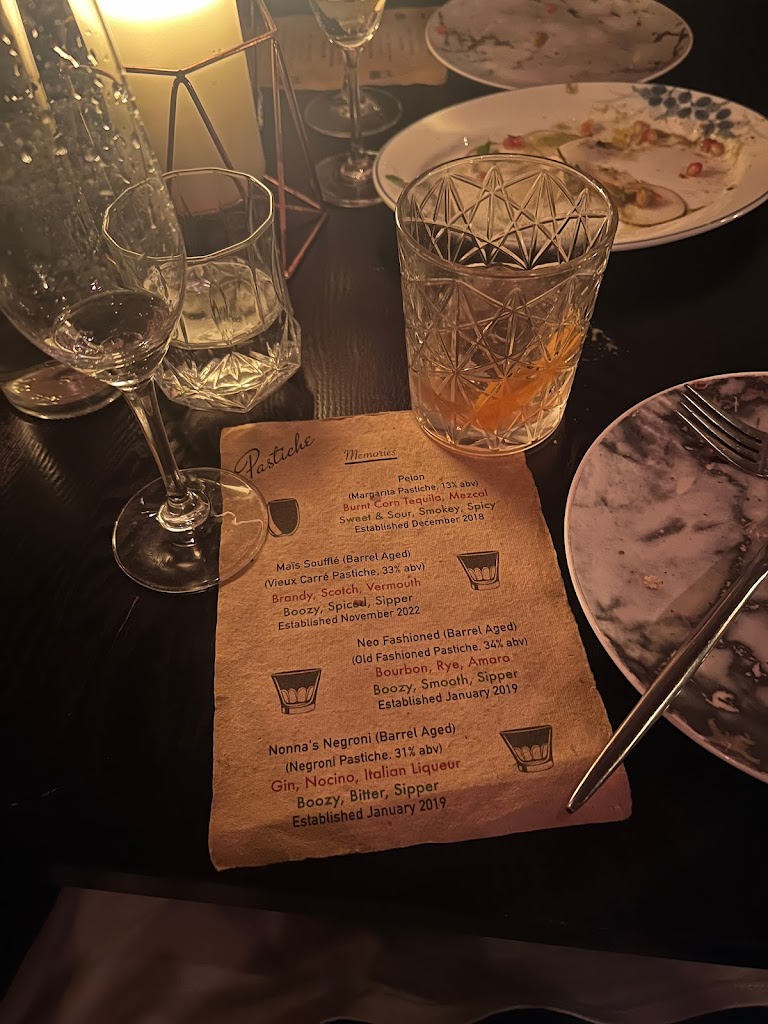 Pastiche
Memories
Pelon
(Margarita Pastiche, 13% abv)
Burnt Corn Tequila, Mezcal
Sweet & Sour, Smokey, Spicy
Established December 2018
Maïs Soufflé (Barrel Aged)
(Vieux Carré Pastiche. 33% abv)
Brandy, Scotch, Vermouth
Boozy, Spiced, Sipper
Established November 2022
Neo Fashioned (Barrel Aged)
(Old Fashioned Pastiche. 34% abv)
Bourbon, Rye, Amaro
Boozy, Smooth, Sipper
Established January 2019
Nonna's Negroni (Barrel Aged)
(Negroni Pastiche. 31% abv)
Gin, Nocino, Italian Liqueur
Boozy, Bitter, Sipper
Established January 2019